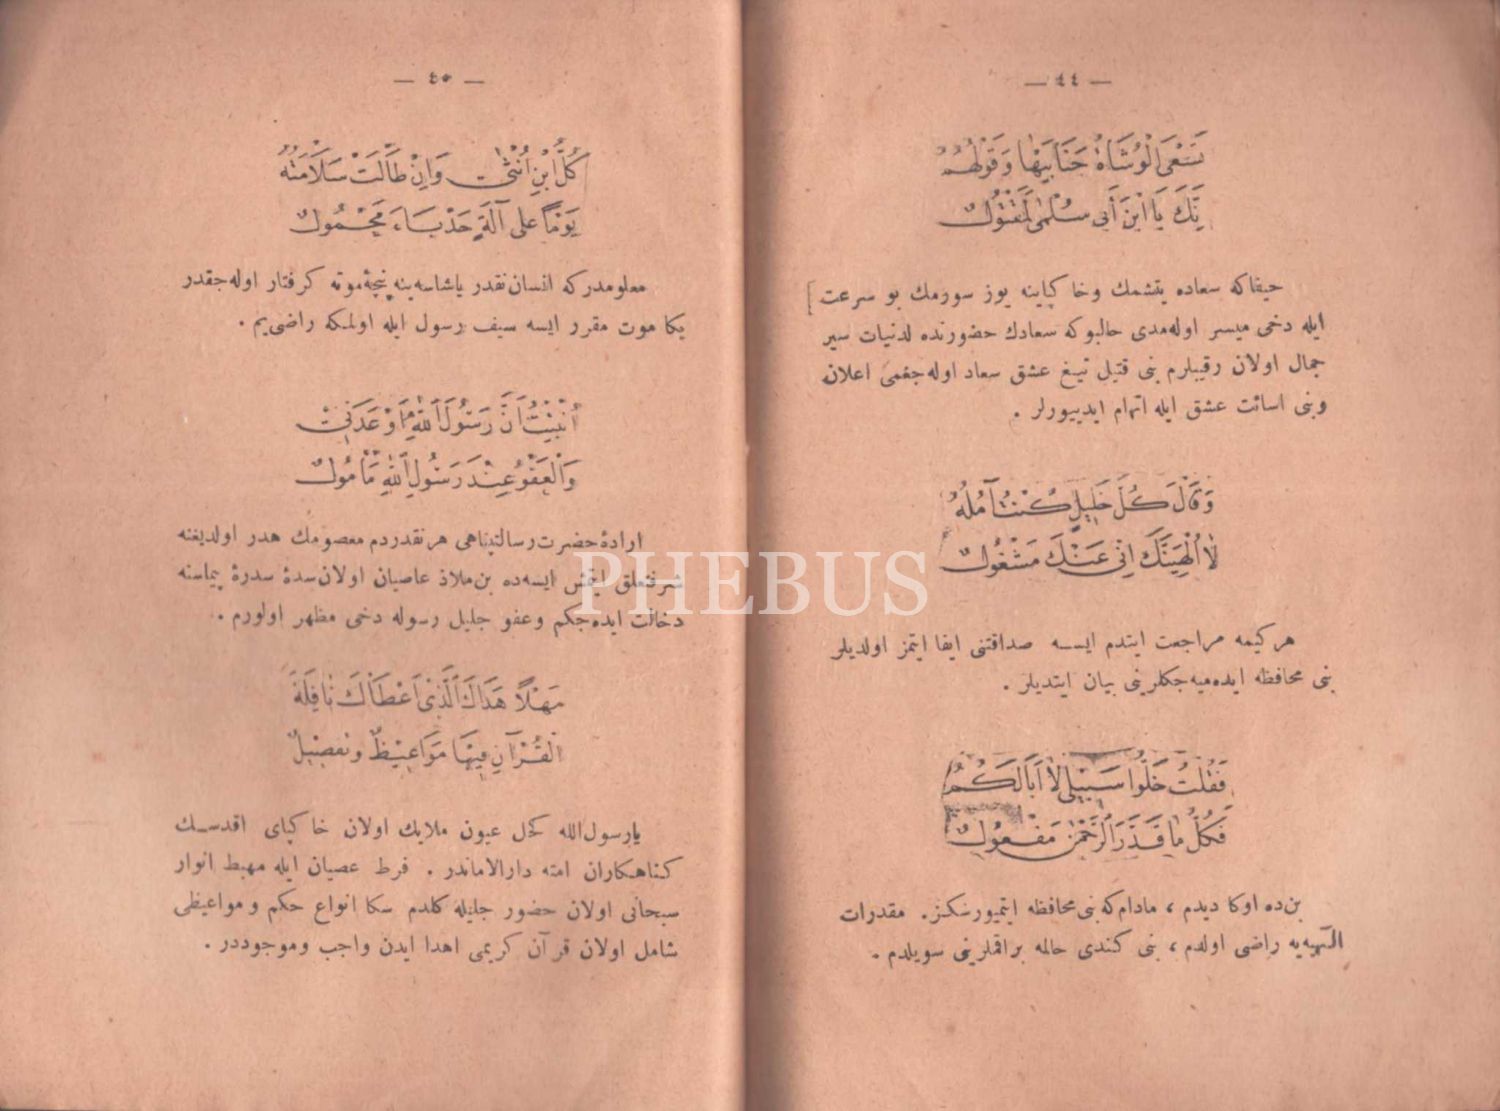 — ٤٤ —
تَسْعَى الْوُشَاةُ جَنَابَيْهَا وَقَوْلُهُمُ
نَّكَ يَا ابْنَ أَبِي سُلْمٰى لَمَقْتُولٌ
حيفاكه سعاده يتشمك وخاكپاينه يوز سورمك بو سرعت
ايله دخى ميسر اوله‌مدى حالبوكه سعادك حضورنده لدنيات سير
جمال اولان رقيبلرم بنى قتيل تيغ عشق سعاد اوله‌جغمى اعلان
وبنى اسائت عشق ايله اتهام ايدييورلر .
وَقَالَ كُلُّ خَلِيلٍ كُنْتُ آمُلُهُ
لَا اُلْهِيَنَّكَ اِنّٖى عَنْكَ مَشْغُولٌ
هر كيمه مراجعت ايتدم ايسـه صداقتنى ايفا ايتمز اولديلر
بنى محافظه ايده‌ميه‌جكلرينى بيان ايتديلر .
فَقُلْتُ خَلُّوا سَبٖيلٖى لَا اَبَالَكُمُ
فَكُلُّ مَا قَدَّرَ الرَّحْمٰنُ مَفْعُولٌ
بن‌ده اوكا ديدم ، مادام‌كه بنى محافظه ايتميورسكز. مقدرات
الٓهيه‌يه راضى اولدم ، بنى كندى حالمه براقملرينى سويلدم .
— ٤٥ —
كُلُّ ابْنِ اُنْثٰى وَاِنْ طَالَتْ سَلَامَتُهُ
يَوْمًا عَلٰى آلَةٍ حَدْبَاءَ مَحْمُولٌ
معلومدركه انسان نقدر ياشاسه‌ينه پنچۀ موته كرفتار اوله‌جقدر
بكا موت مقرر ايسه سيف رسول ايله اولمكه راضى‌يم .
اُنْبِئْتُ اَنَّ رَسُولَ اللّٰهِ اَوْعَدَنٖى
وَالْعَفْوُ عِنْدَ رَسُولِ اللّٰهِ مَأْمُولٌ
ارادۀ حضرت رسالتپناهى هرنقدردم معصومك هدر اولديغنه
شرفتعلق ايتمش ايسه‌ده بن ملاذ عاصيان اولان سدۀ سدرۀ پيماسنه
دخالت ايده‌جكم وعفو جليل رسوله دخى مظهر اولورم .
مَهْلًا هَدَاكَ الَّذٖى اَعْطَاكَ نَافِلَةَ
الْقُرْآنِ فٖيهَا مَوَاعٖيظٌ وَتَفْصٖيلٌ
يارسول‌الله كحل عيون ملايك اولان خاكپاى اقدسـك
كناهكاران امته دارالاماندر . فرط عصيان ايله مهبط انوار
سبحانى اولان حضور جليله كلدم سكا انواع حكم ومواعيظى
شامل اولان قرآن كريمى اهدا ايدن واجب وموجوددر .
PHEBUS